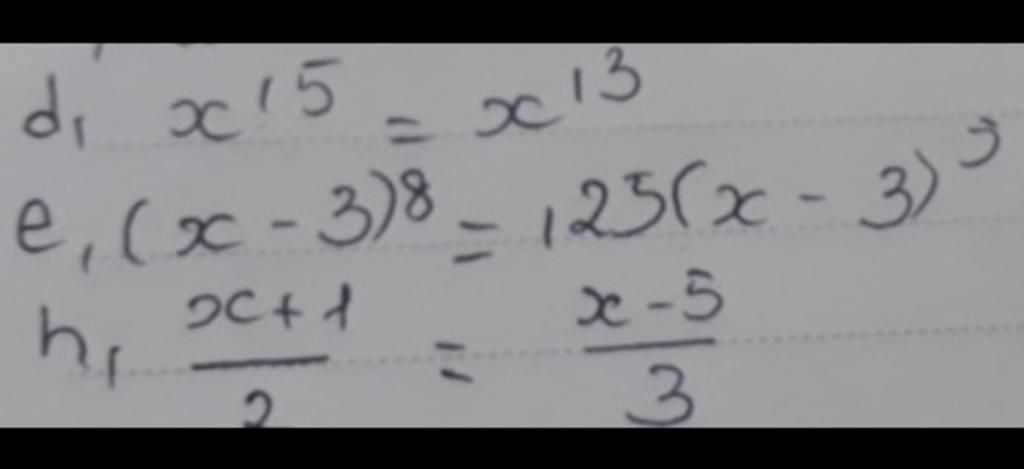 d, x^15 = x^13
e, (x - 3)^8 = 125(x - 3)^5
h, (x+1)/2 = (x-5)/3